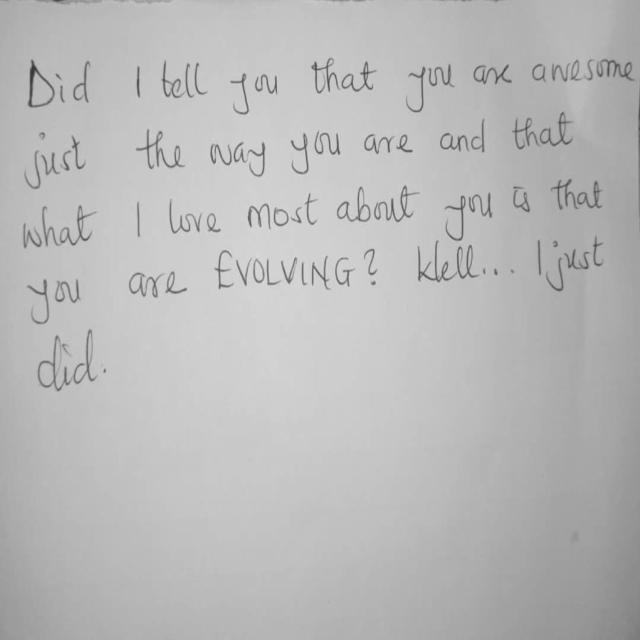 Did I tell you that you are awesome
just the way you are and that
what I love most about you is that
you are EVOLVING? Well... I just
did.